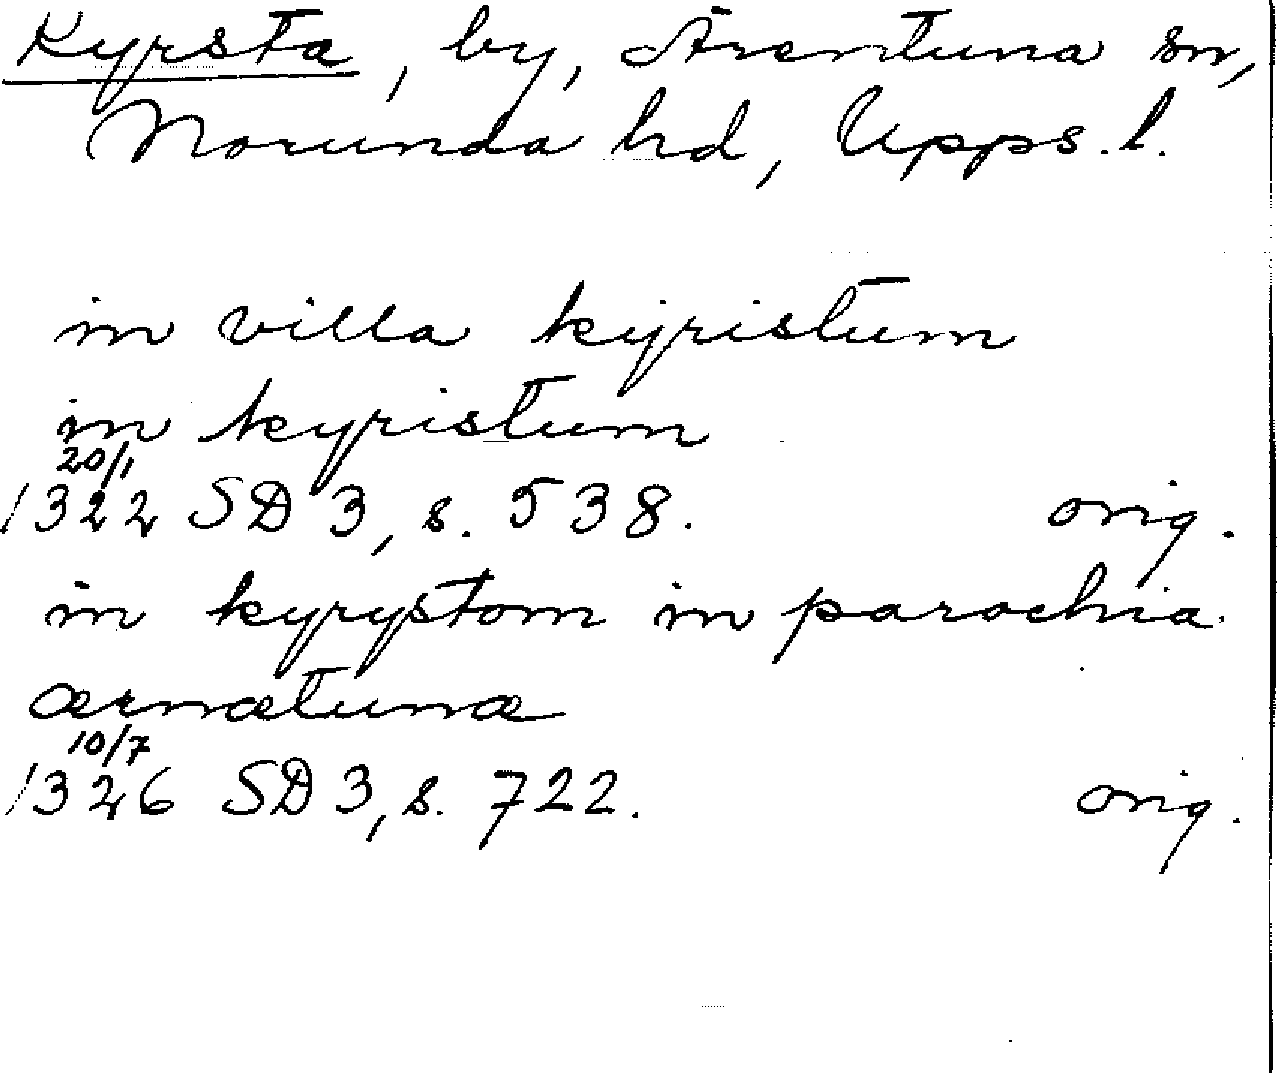 Kyrsta, by, Ärentuna sn,
Norunda hd, Upps. l.
in villa kyristum
in kyristum
20/1
1322 SD 3, s. 538. orig.
in kyrystom in parochia
ærnætunæ
10/7
1326 SD 3, s. 722. orig.